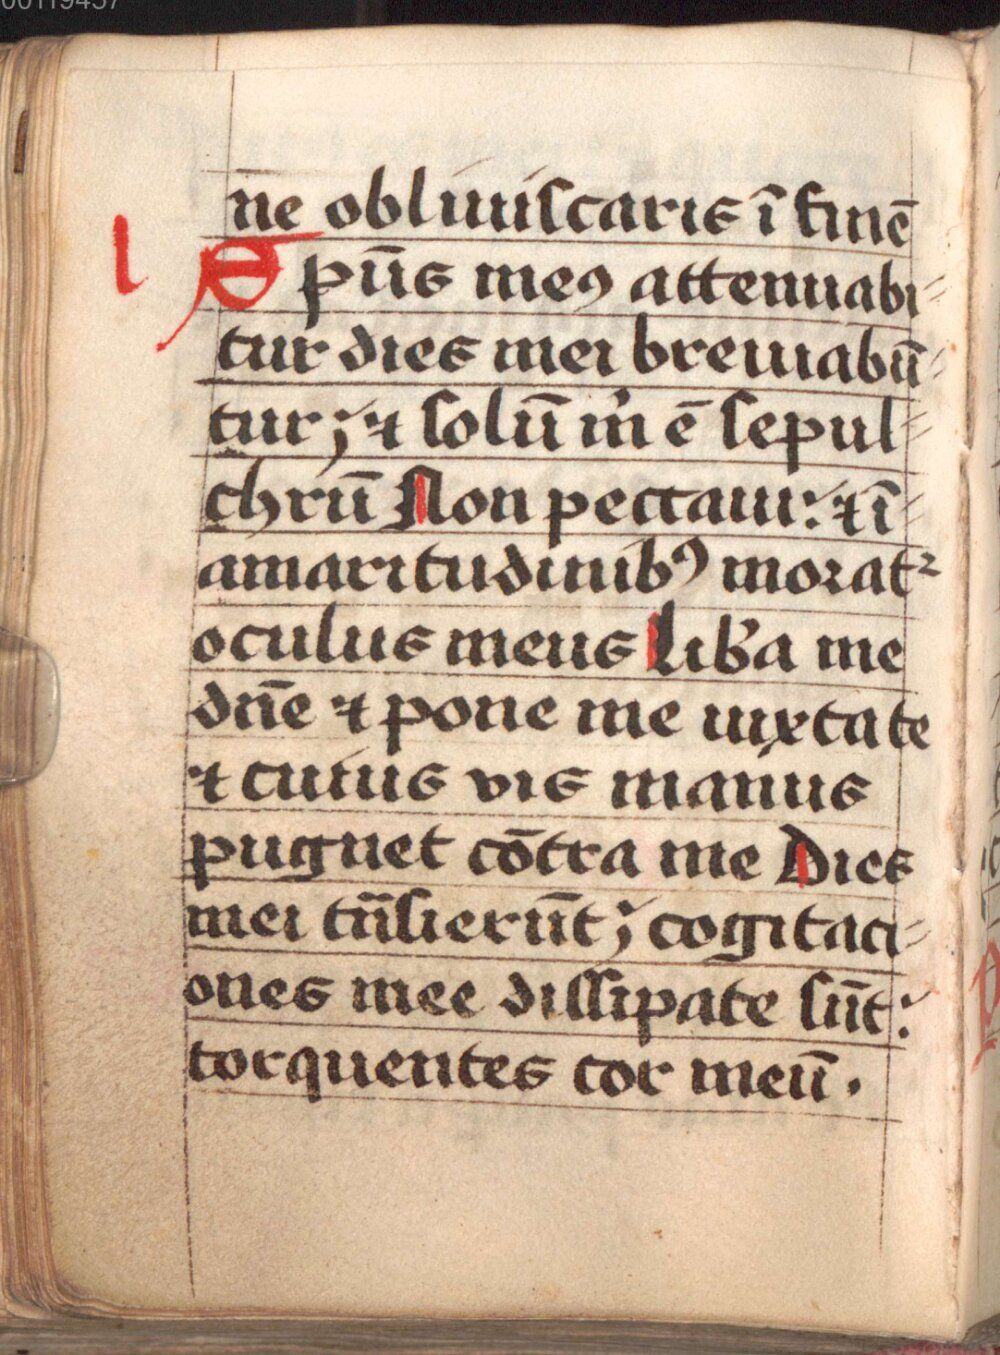 00119457
ne obliuiscaris ī finē
l Spūs meꝰ attenuabi⸗
tur dies mei breuiabū⸗
tur ; ⁊ solū m̄ ē sepul⸗
chrū Non peccaui : ⁊ ī⸗
amaritudinibꝰ morat᷑
oculus meus Lib̓a me
dn̄e ⁊ pone me iuxta te
⁊ cuius vis manus
pugnet cōtra me Dies
mei tn̄sierūt ; cogitaci⸗
ones mee dissipate sūt :
torquentes cor meū .